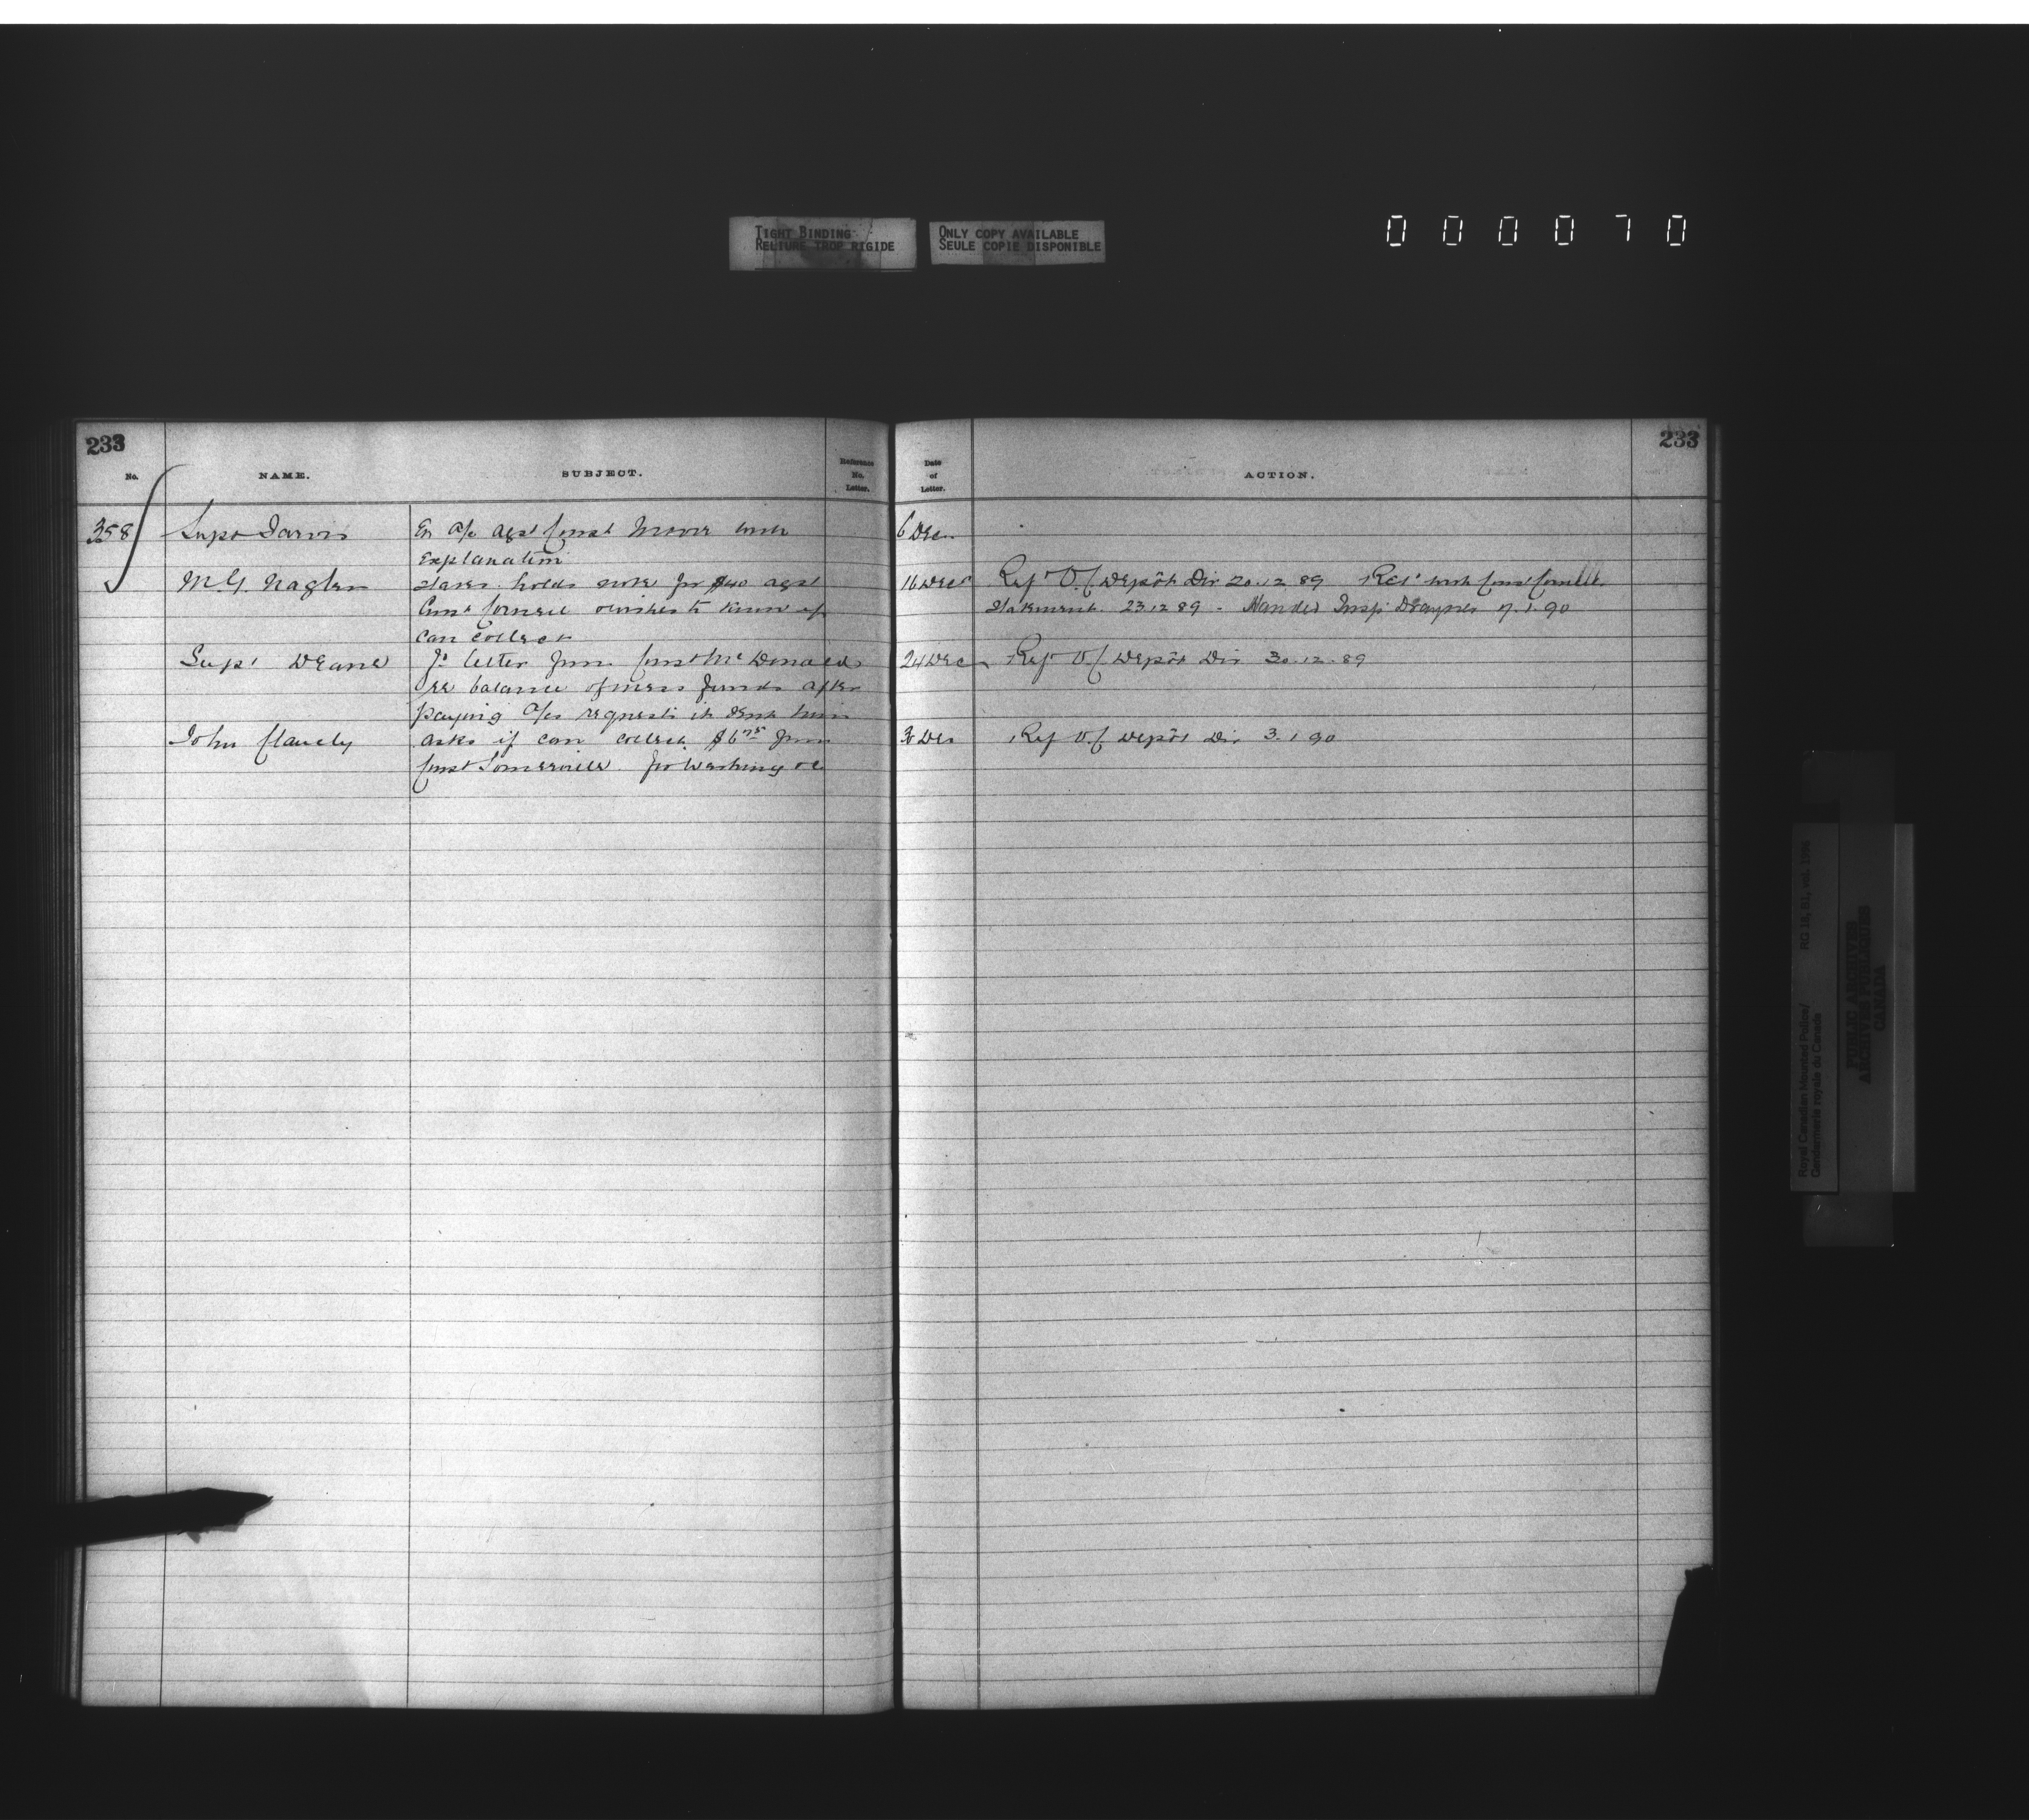 TIGHT BINDING
RELIURE TROP RIGIDE
ONLY COPY AVAILABLE
SEULE COPIE DISPONIBLE
000070
233
233
No.
NAME.
SUBJECT.
Reference No. Letter.
Date of Letter.
ACTION.
358 Supt Jarvis En a/c agst Const Mover with 6 Dec
Explanation
M.G. Nagler States holds note for $40 agst 16 Dec Ref O.C Depôt Div 20.12.89 Ret with Const Cornell
Const Cornell wishes to know if Statement 23.12.89 - Handed Insp
can collect
Supt Deane Fd letter from Const McDonald 24 Dec Ref O.C Depôt Div 30.12.89
re balance of mess funds after
paying a/cs requests it sent him
John asks if can collect $6 75 from 30 Dec Ref O.C Depôt Div 3.1.90
Const Somerville for Washing &c
Royal Canadian Mounted Police/
Gendarmerie royale du Canada
RG 18, B1, vol.
PUBLIC ARCHIVES
ARCHIVES PUBLIQUES
CANADA